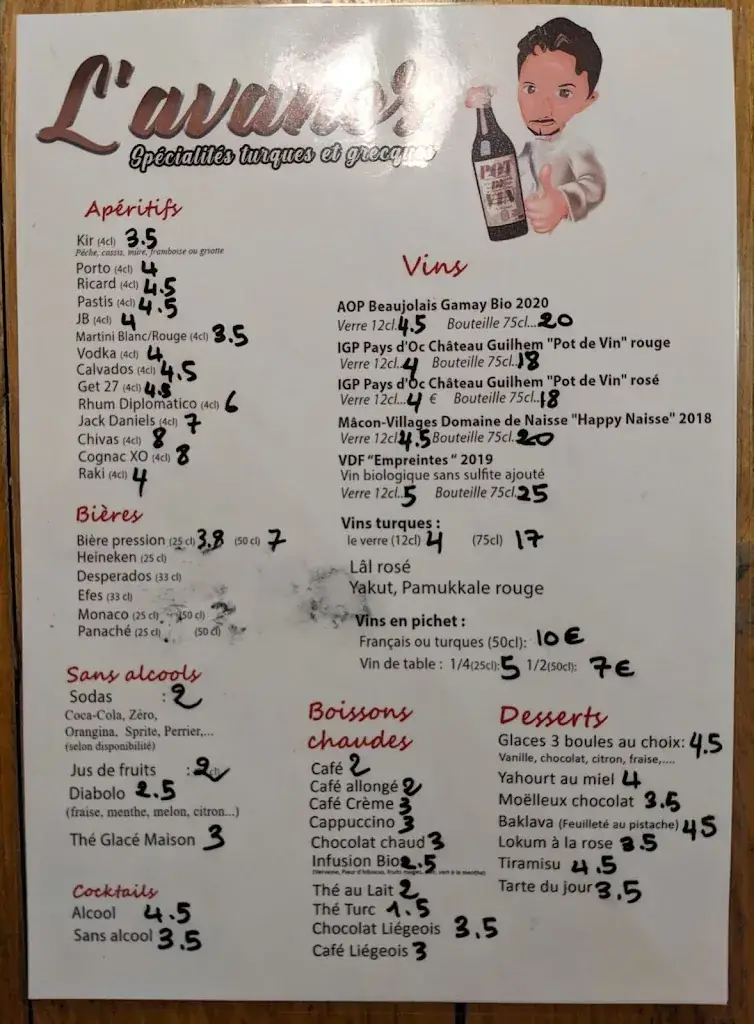 L'avanos
Spécialités turques et grecques
POT
DE
VIN
Apéritifs
Kir (4cl) 3.5
Pêche, cassis, mûre, framboise ou griotte
Porto (4cl) 4
Ricard (4cl) 4.5
Pastis (4cl) 4.5
JB (4cl) 4
Martini Blanc/Rouge (4cl) 3.5
Vodka (4cl) 4
Calvados (4cl) 4.5
Get 27 (4cl) 4.5
Rhum Diplomatico (4cl) 6
Jack Daniels (4cl) 7
Chivas (4cl) 8
Cognac XO (4cl) 8
Raki (4cl) 4
Bières
Bière pression (25 cl) 3.8 (50 cl) 7
Heineken (25 cl)
Desperados (33 cl)
Efes (33 cl)
Monaco (25 cl) (50 cl)
Panaché (25 cl) (50 cl)
Sans alcools
Sodas : 2
Coca-Cola, Zéro,
Orangina, Sprite, Perrier,...
(selon disponibilité)
Jus de fruits : 2
Diabolo 2.5
(fraise, menthe, melon, citron...)
Thé Glacé Maison 3
Cocktails
Alcool 4.5
Sans alcool 3.5
Vins
AOP Beaujolais Gamay Bio 2020
Verre 12cl. 4.5 Bouteille 75cl... 20
IGP Pays d'Oc Château Guilhem "Pot de Vin" rouge
Verre 12cl... 4 Bouteille 75cl.. 18
IGP Pays d'Oc Château Guilhem "Pot de Vin" rosé
Verre 12cl... 4 € Bouteille 75cl.. 18
Mâcon-Villages Domaine de Naisse "Happy Naisse" 2018
Verre 12cl 4.5 Bouteille 75cl. 20
VDF "Empreintes" 2019
Vin biologique sans sulfite ajouté
Verre 12cl.. 5 Bouteille 75cl. 25
Vins turques :
le verre (12cl) 4 (75cl) 17
Lâl rosé
Yakut, Pamukkale rouge
Vins en pichet :
Français ou turques (50cl): 10 €
Vin de table : 1/4(25cl): 5 1/2(50cl): 7 €
Boissons
chaudes
Café 2
Café allongé 2
Café Crème 3
Cappuccino 3
Chocolat chaud 3
Infusion Bio 2.5
Thé au Lait 2
Thé Turc 1.5
Chocolat Liégeois 3.5
Café Liégeois 3
Desserts
Glaces 3 boules au choix: 4.5
Vanille, chocolat, citron, fraise,....
Yahourt au miel 4
Moëlleux chocolat 3.5
Baklava (Feuilleté au pistache) 45
Lokum à la rose 3.5
Tiramisu 4.5
Tarte du jour 3.5